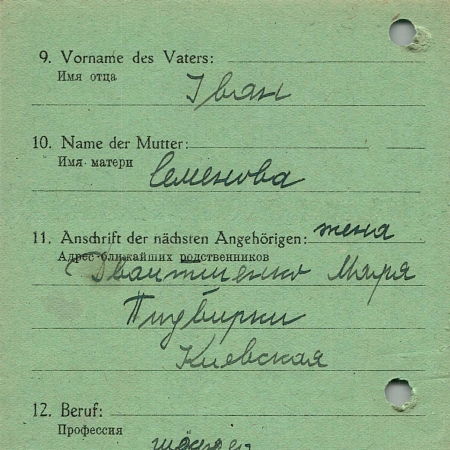 9. Vorname des Vaters:
Имя отца
Іван
10. Name der Mutter:
Имя матери
Семенова
11. Anschrift der nächsten Angehörigen: жена
Адрес ближайших родственников
Мария
Пидбирки
Киевская
12. Beruf:
Профессия